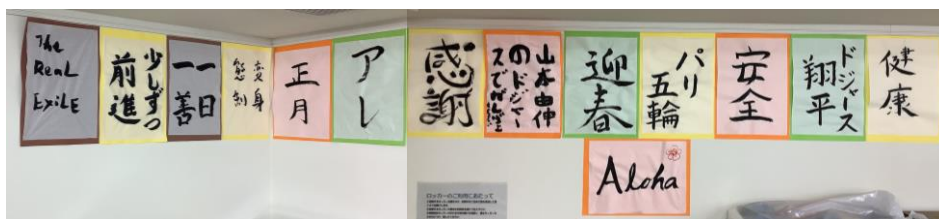 The
Real
Exile
少しずつ
前進
一日
一善
変身
正月
アレ
感謝
山本由伸
のドジャー
迎春
パリ
五輪
安全
ドジャース
翔平
健康
Aloha
ロッカーのご利用にあたって